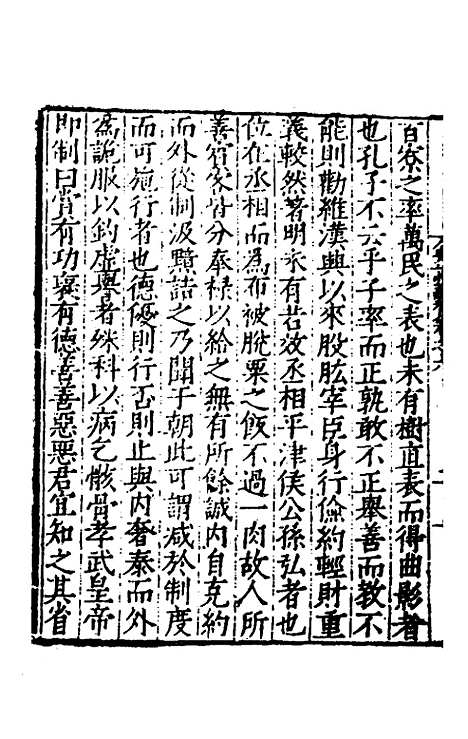 百寮之率萬民之表也未有樹直表而得曲影者
也孔子不云乎子率而正孰敢不正舉善而教不
能則勸維漢興以來股肱宰臣身行儉約輕財重
義較然著明未有若故丞相平津侯公孫弘者也
位在丞相而為布被脫粟之飯不過一肉故人所
善賓客皆分奉祿以給之無有所餘誠内自克約
而外從制汲黯詰之乃聞于朝此可謂减於制度
而可施行者也德優則行否則止與内奢泰而外
為詭服以釣虚譽者殊科以病乞骸骨孝武皇帝
即制曰賞有功襃有德善善惡惡君宜知之其省